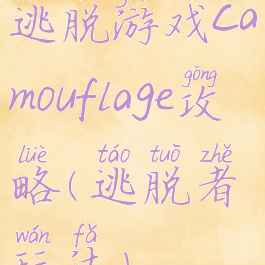 逃脱游戏Ca
gōng
mouflage攻
lüè táo tuō zhě
略(逃脱者
wán fǎ
玩法)